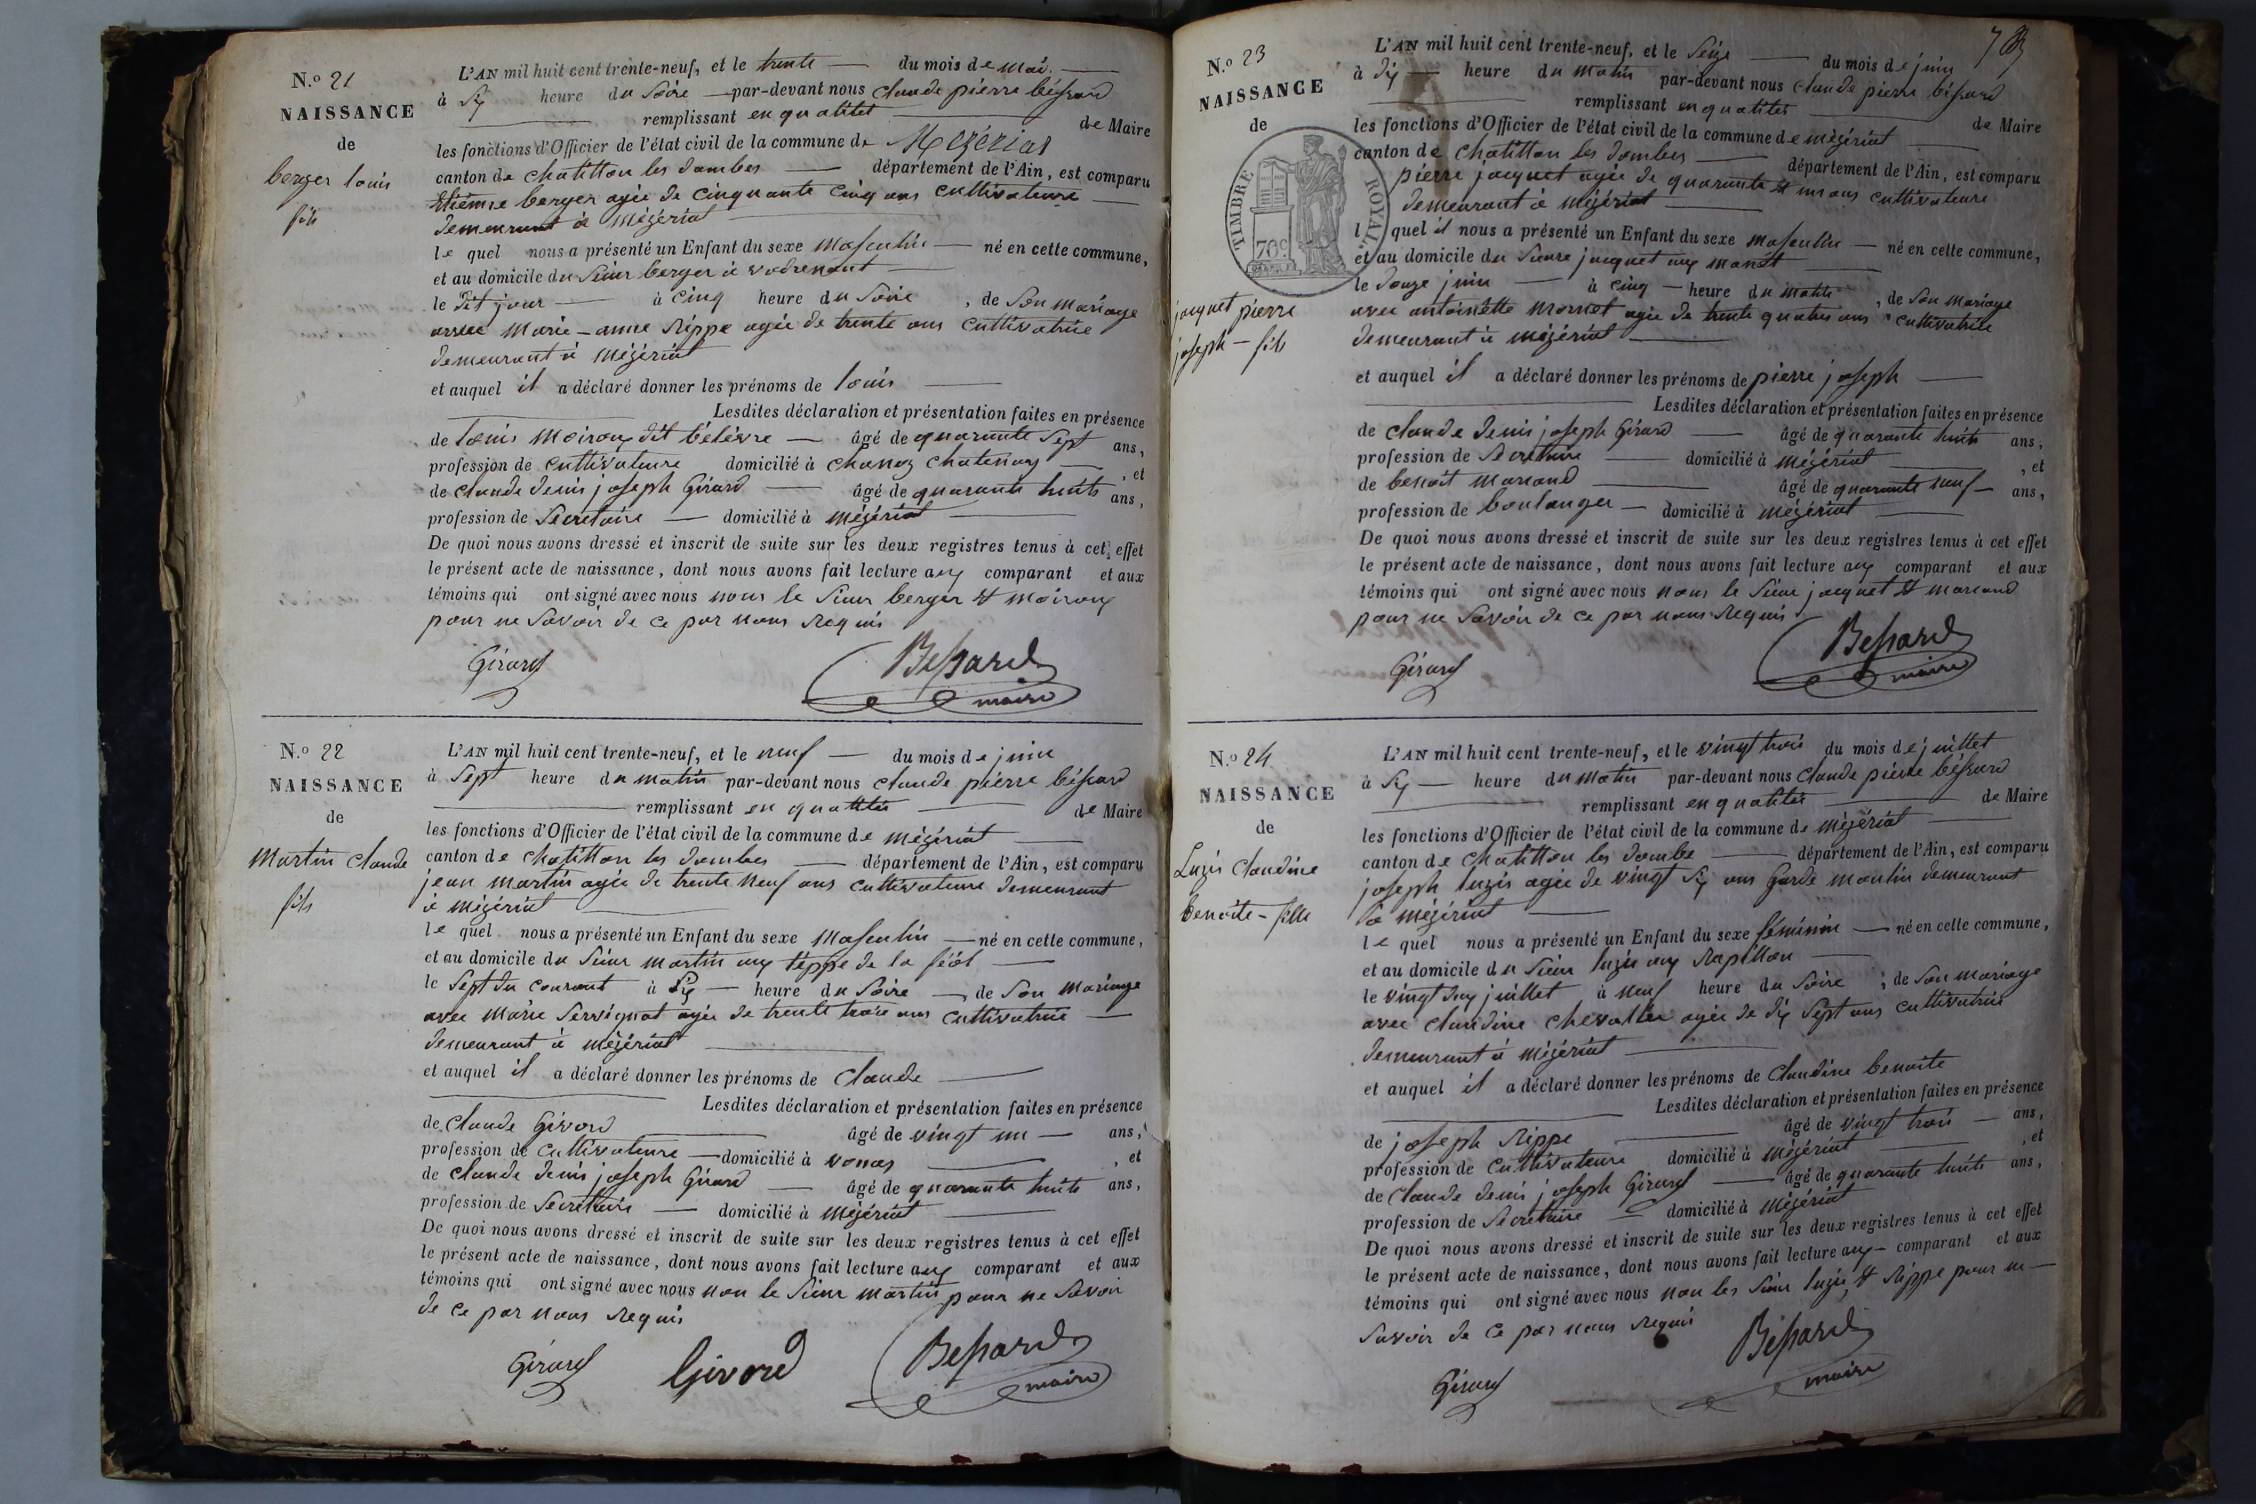 N.o 21
NAISSANCE
de
berger louis
fils
L'AN mil huit cent trente-neuf, et le trente du mois de mai
à Six heure du Soire par-devant nous claude pierre béssard
remplissant en qualités de Maire
les fonctions d'Officier de l'état civil de la commune de Mézériat
canton de chatillon les dombes département de l'Ain, est comparu
Etienne berger agée de cinquante cinq ans cultivateure
demeurant à mézériat
le quel nous a présenté un Enfant du sexe masculin né en cette commune,
et au domicile du Sieur berger à vodrenant
le dit jour à cinq heure du Soire, de Son mariage
avec marie-anne Rippe agée de trente ans cultivatrice
demeurant à mézériat
et auquel il a déclaré donner les prénoms de louis
Lesdites déclaration et présentation faites en présence
de louis moiroux dit belèvre âgé de quarante Sept ans,
profession de cultivateure domicilié à chanoz chatenay, et
de claude denis joseph Girard âgé de quarante huits ans,
profession de Secretaire domicilié à mézériat
De quoi nous avons dressé et inscrit de suite sur les deux registres tenus à cet effet
le présent acte de naissance, dont nous avons fait lecture aux comparant et aux
témoins qui ont signé avec nous nous le Sieur berger et moiroux
pour ne Savoir de ce par nous Requis
Girard Bessard
maire
N.o 22
NAISSANCE
de
martin claude
fils
L'AN mil huit cent trente-neuf, et le neuf du mois de juin
à Sept heure du matin par-devant nous claude pierre béssard
remplissant en qualités de Maire
les fonctions d'Officier de l'état civil de la commune de mézériat
canton de chatillon les dombes département de l'Ain, est comparu
jean martin agée de trente neuf ans cultivateure demeurant
à mézériat
le quel nous a présenté un Enfant du sexe masculin né en cette commune,
et au domicile du Sieur martin aux téppe de la féôl
le Sept du courant à Six heure du Soire, de Son mariage
avec marie Servignat agée de trente trois ans cultivatrice
demeurant à mézériat
et auquel il a déclaré donner les prénoms de claude
Lesdites déclaration et présentation faites en présence
de claude Givord âgé de vingt un ans,
profession de cultivateure domicilié à vonas, et
de claude denis joseph Girard âgé de quarante huits ans,
profession de Secretaire domicilié à mézériat
De quoi nous avons dressé et inscrit de suite sur les deux registres tenus à cet effet
le présent acte de naissance, dont nous avons fait lecture aux comparant et aux
témoins qui ont signé avec nous non le Sieur martin pour ne Savoir
de ce par nous Requis
Girard Givord Bessard
maire
N.o 23
NAISSANCE
de
TIMBRE ROYAL
70c
jacquet pierre
joseph - fils
L'AN mil huit cent trente-neuf, et le Seize du mois de juin
à dix heure du matin par-devant nous claude pierre béssard
remplissant en qualités de Maire
les fonctions d'Officier de l'état civil de la commune de mézériat
canton de chatillon les dombes département de l'Ain, est comparu
pierre jacquet agée de quarante et un ans cultivateure
demeurant à mézériat
l quel il nous a présenté un Enfant du sexe masculin né en cette commune,
et au domicile du Sieure jacquet aux manét
le douze juin à cinq heure du matin, de Son mariage
avec antoinette mornet agée de trente quatre ans cultivatrice
demeurant à mézériat
et auquel il a déclaré donner les prénoms de pierre joseph
Lesdites déclaration et présentation faites en présence
de claude denis joseph Girard âgé de quarante huits ans,
profession de Secretaire domicilié à mézériat, et
de benoit marand âgé de quarante neuf ans,
profession de boulanger domicilié à mézériat
De quoi nous avons dressé et inscrit de suite sur les deux registres tenus à cet effet
le présent acte de naissance, dont nous avons fait lecture aux comparant et aux
témoins qui ont signé avec nous nous le Sieur jacquet et marand
pour ne Savoir de ce par nous Requis
Girard Bessard
maire
N.o 24
NAISSANCE
de
Luzis Claudine
benoite - fille
L'AN mil huit cent trente-neuf, et le vingt trois du mois de juillet
à Six heure du matin par-devant nous claude pierre béssard
remplissant en qualités de Maire
les fonctions d'Officier de l'état civil de la commune de mézériat
canton de chatillon les dombe département de l'Ain, est comparu
joseph luzis agée de vingt Six ans Garde moulin demeurant
à mézériat
le quel nous a présenté un Enfant du sexe féminin né en cette commune,
et au domicile du Sieur luzis aux Rapillon
le vingt dux juillet à neuf heure du Soire, de Son mariage
avec claudine chevallier agée de dix Sept ans cultivatrice
demeurant à mézériat
et auquel il a déclaré donner les prénoms de claudine benoite
Lesdites déclaration et présentation faites en présence
de joseph Rippe âgé de vingt trois ans,
profession de cultivateure domicilié à mézériat, et
de claude denis joseph Girard âgé de quarante huits ans,
profession de Secretaire domicilié à mézériat
De quoi nous avons dressé et inscrit de suite sur les deux registres tenus à cet effet
le présent acte de naissance, dont nous avons fait lecture aux comparant et aux
témoins qui ont signé avec nous non les Sieur luzis et Rippe pour ne
Savoir de ce par nous Requis
Girard Béssard
maire